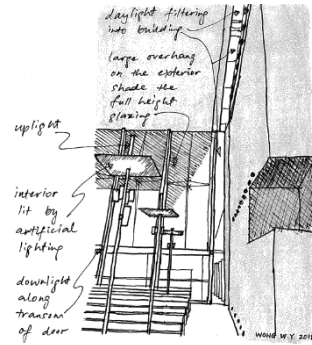 daylight filtering
into building
large overhang
on the exterior
shade the
full height
glazing
uplight
interior
lit by
artificial
lighting
downlight
along
transom
of door
WONG W.Y. 2011